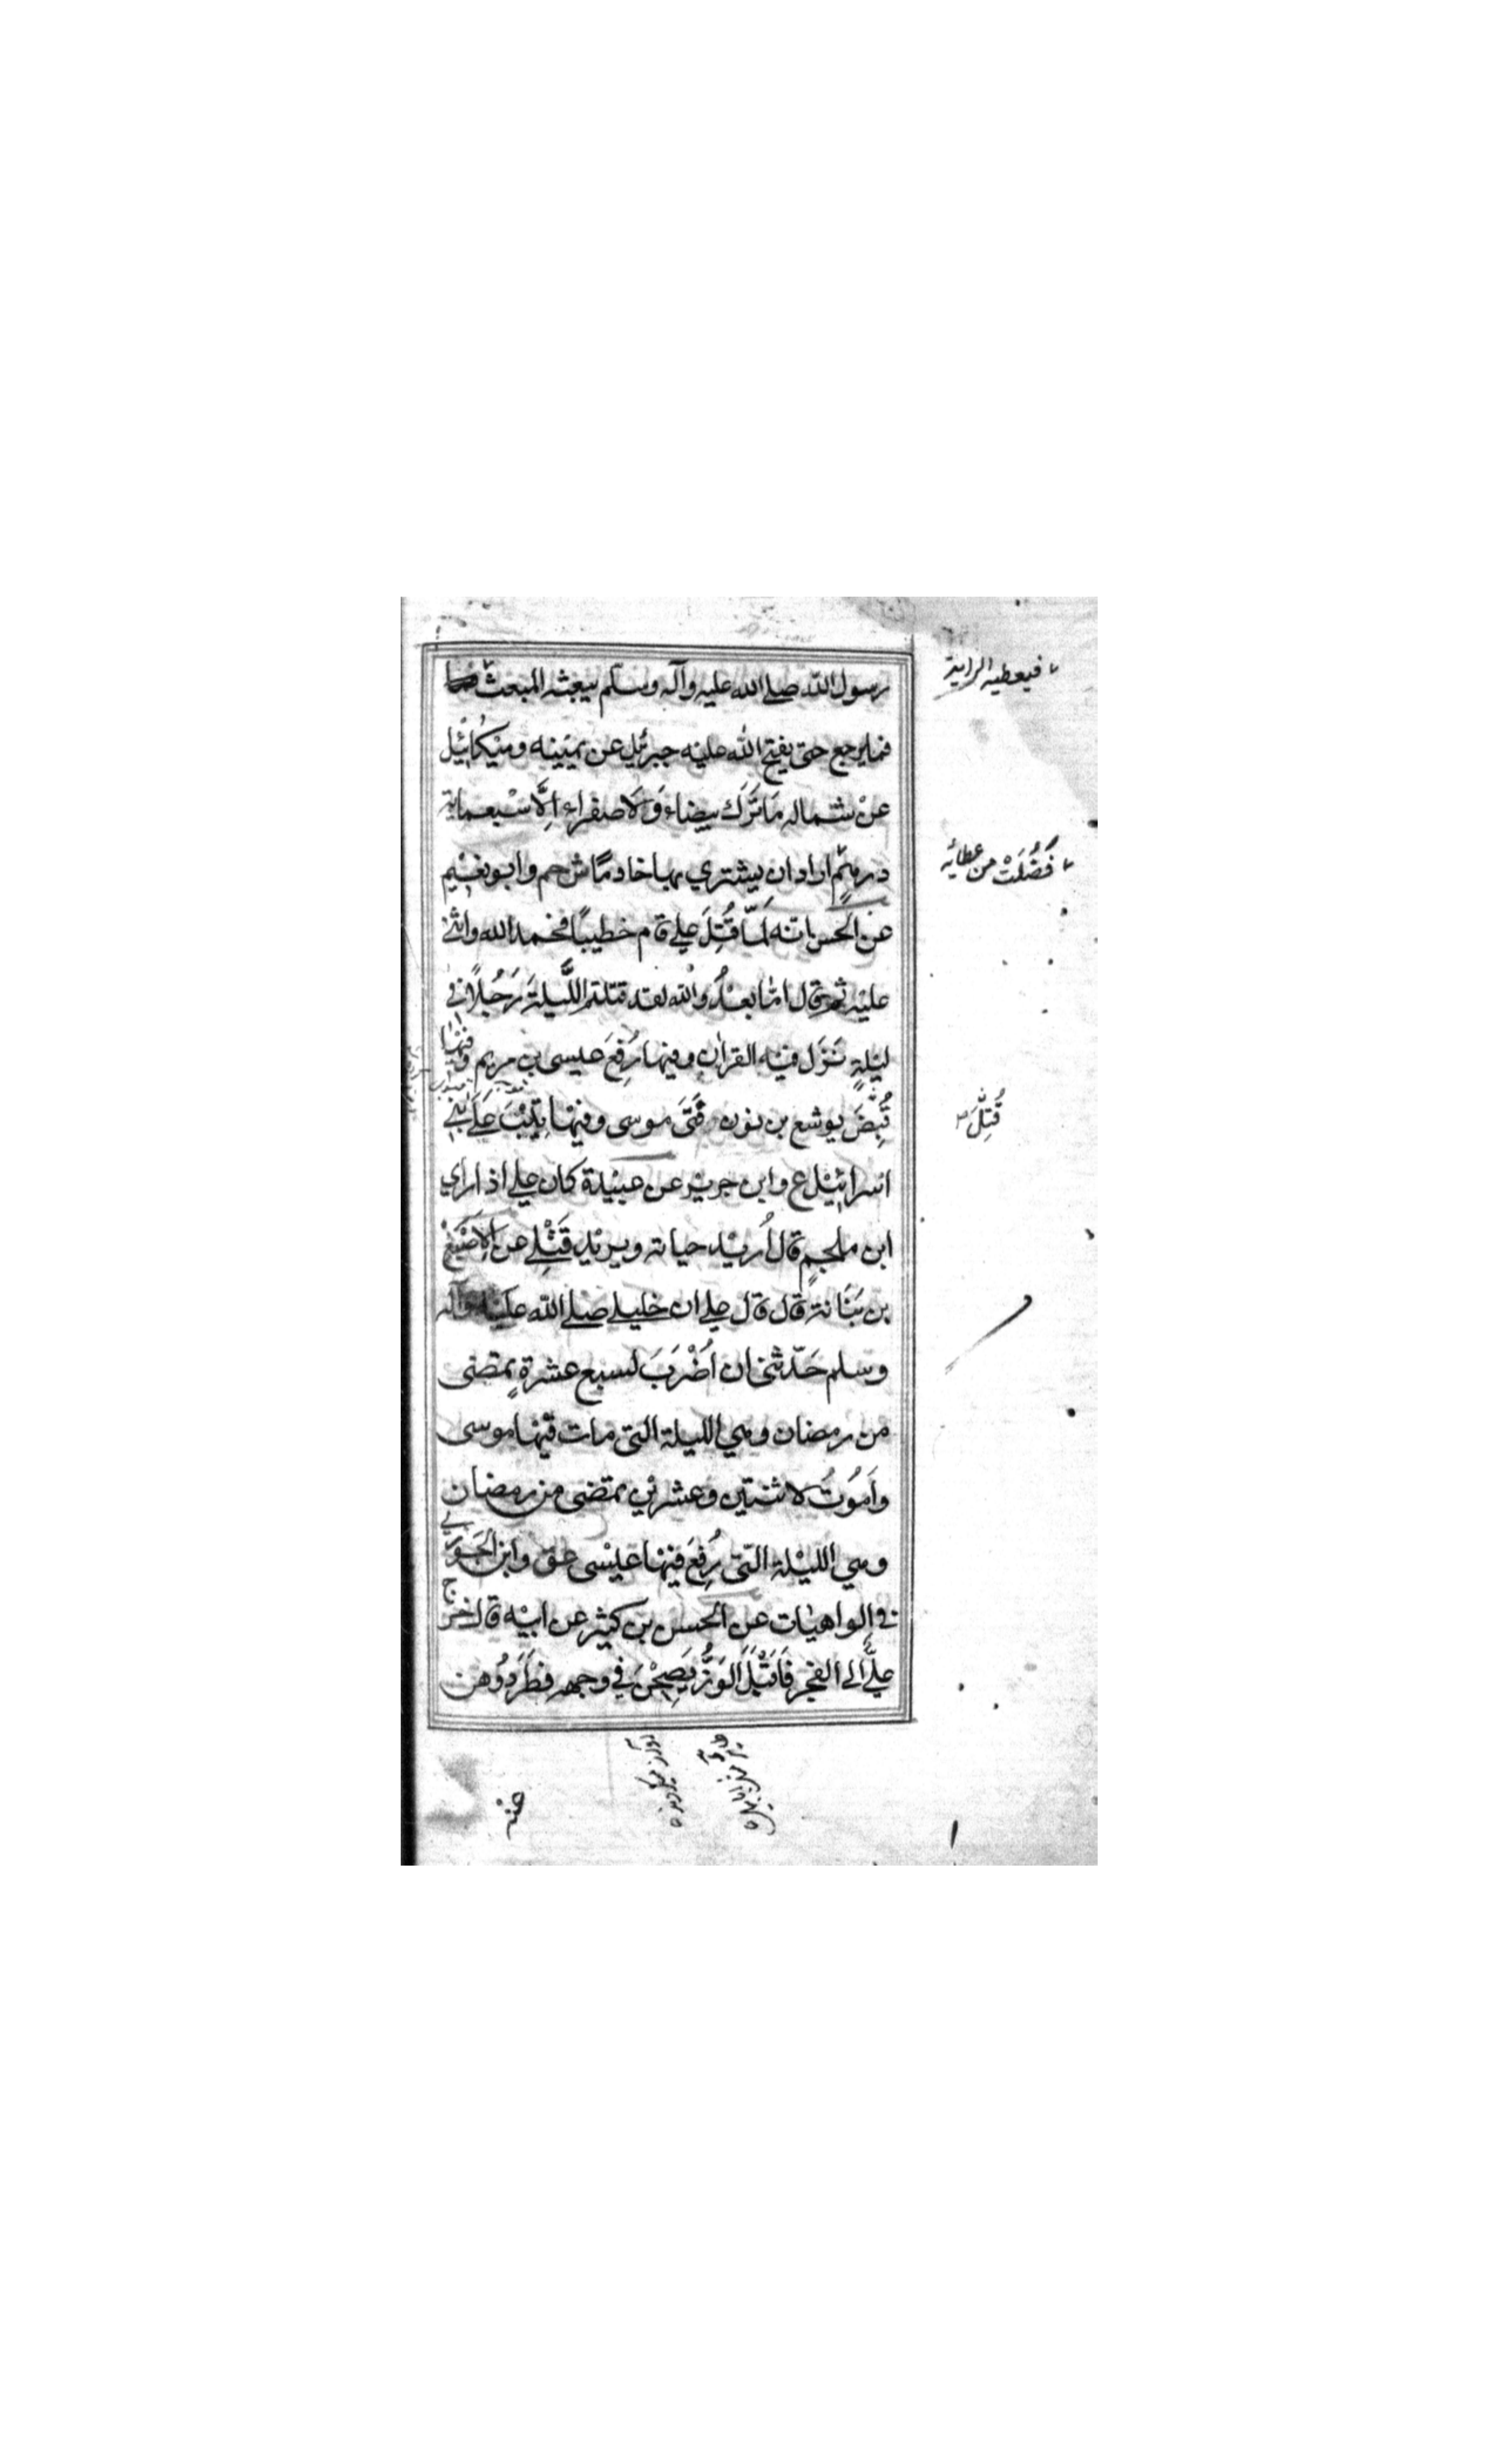 رسول الله صلے الله عليه وآله وسلّم يبعثه المبعث
فيعطيه الراية
فما يرجع حتى يفتح الله عليه جبرئيل عن يمينه وميكائيل
عن شماله مَا تَرَك بيضاء وَلَا صفراء اِلَّا سْبعماية
فَضُلَتْ من عطائه
درهمٍ اراد ان يشتري بها خادمًا ش حم وابو نعيم
عن الحسن انه لَمّا قُتِلَ علي قام خطيبًا فحمد الله واثنى
عليه ثم قال امّا بعدُ والله لقد قتلتم اللَّيلةَ رَجُلًا في
ليلةٍ نَزَل فيه القراٰن وفيها رُفِعَ عيسى بن مريم وفيها
قُتِلَ
قُبِضَ يوشع بن نون فَتَى موسى وفيها تِيْبَ عَلَى بني
اسرائيل ع وابن جرير عن عبيدة كان علي اذا راي
ابن ملجمٍ قال اُريد حياته ويريد قَتْلِے عن الاَصْبَغ
بن نبَاتة قال قال علي ان خليلے صلے الله عليه وآله
وسلم حَدّثني ان اُضْرَبَ لسبع عشرةٍ تمضى
من رمضان وهي الليلة التى مات فيها موسى
وأَمُوتُ لاثنتين وعشرين تمضى من رمضان
وهي الليلة التى رُفِعَ فيها عيْسى عق وابن الجَوزي
في الواهيات عن الحسن بن كثير عن ابيه قال خرج
عليٌّ الى الفجر فَاَقْبَلَ الوَزُّ يَصِحْنَ في وجهه فطَرَدُوهن
عنه